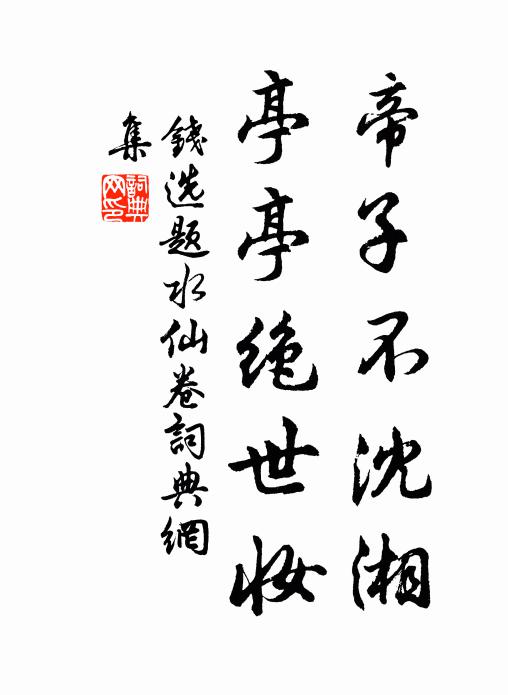 帝子不沈湘
亭亭绝世妆
錢选题水仙卷詞典網
集
詞典网印